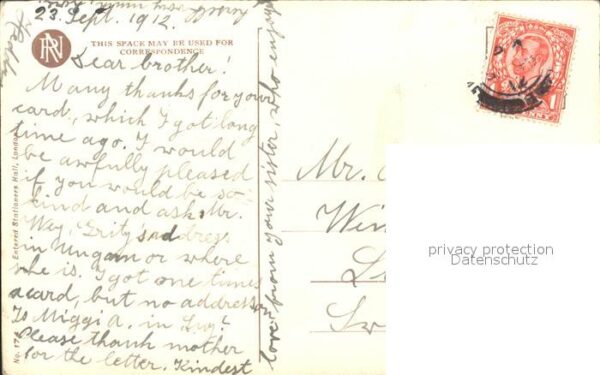 23. Sept. 1912.
RN
THIS SPACE MAY BE USED FOR
CORRESPONDENCE
Dear brother!
Many thanks for your
card, which I got long
time ago. I would
be awfully pleased
if you would be so
kind and ask Mr.
Wey, address
in or where
she is. I got one times
a card, but no address
Is Miggi A. in
Please thank mother
for the letter. Kindest
love from your sister, who enjoys
Mr.
Entered Stationers Hall, London
No. 17
PENNY
privacy protection
Datenschutz